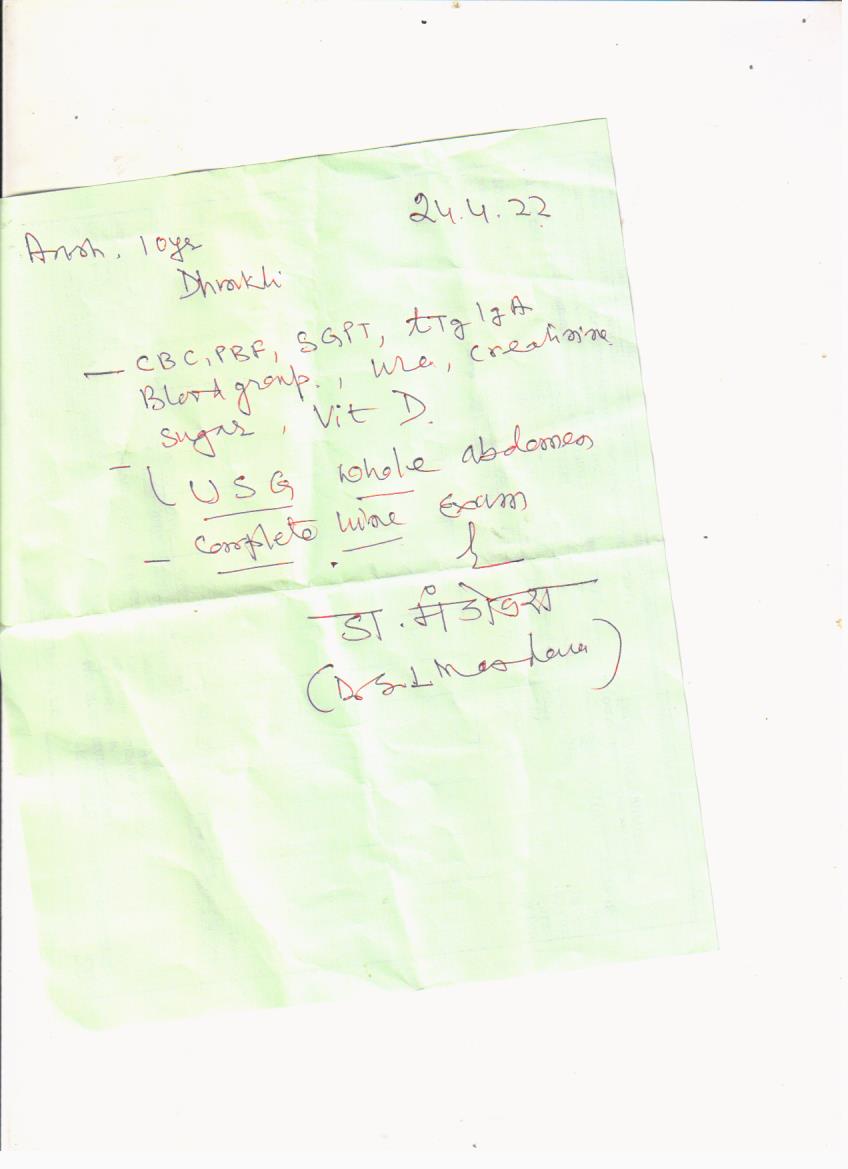 24.4.22
Ansh. 10yr
Dhrakli
— CBC, PBF, SGPT, tTg IgA
Blood group., Urea, Creatinine
sugar, Vit D.
- USG whole abdomen
- Complete urine exam
डा.
(Dr S.L